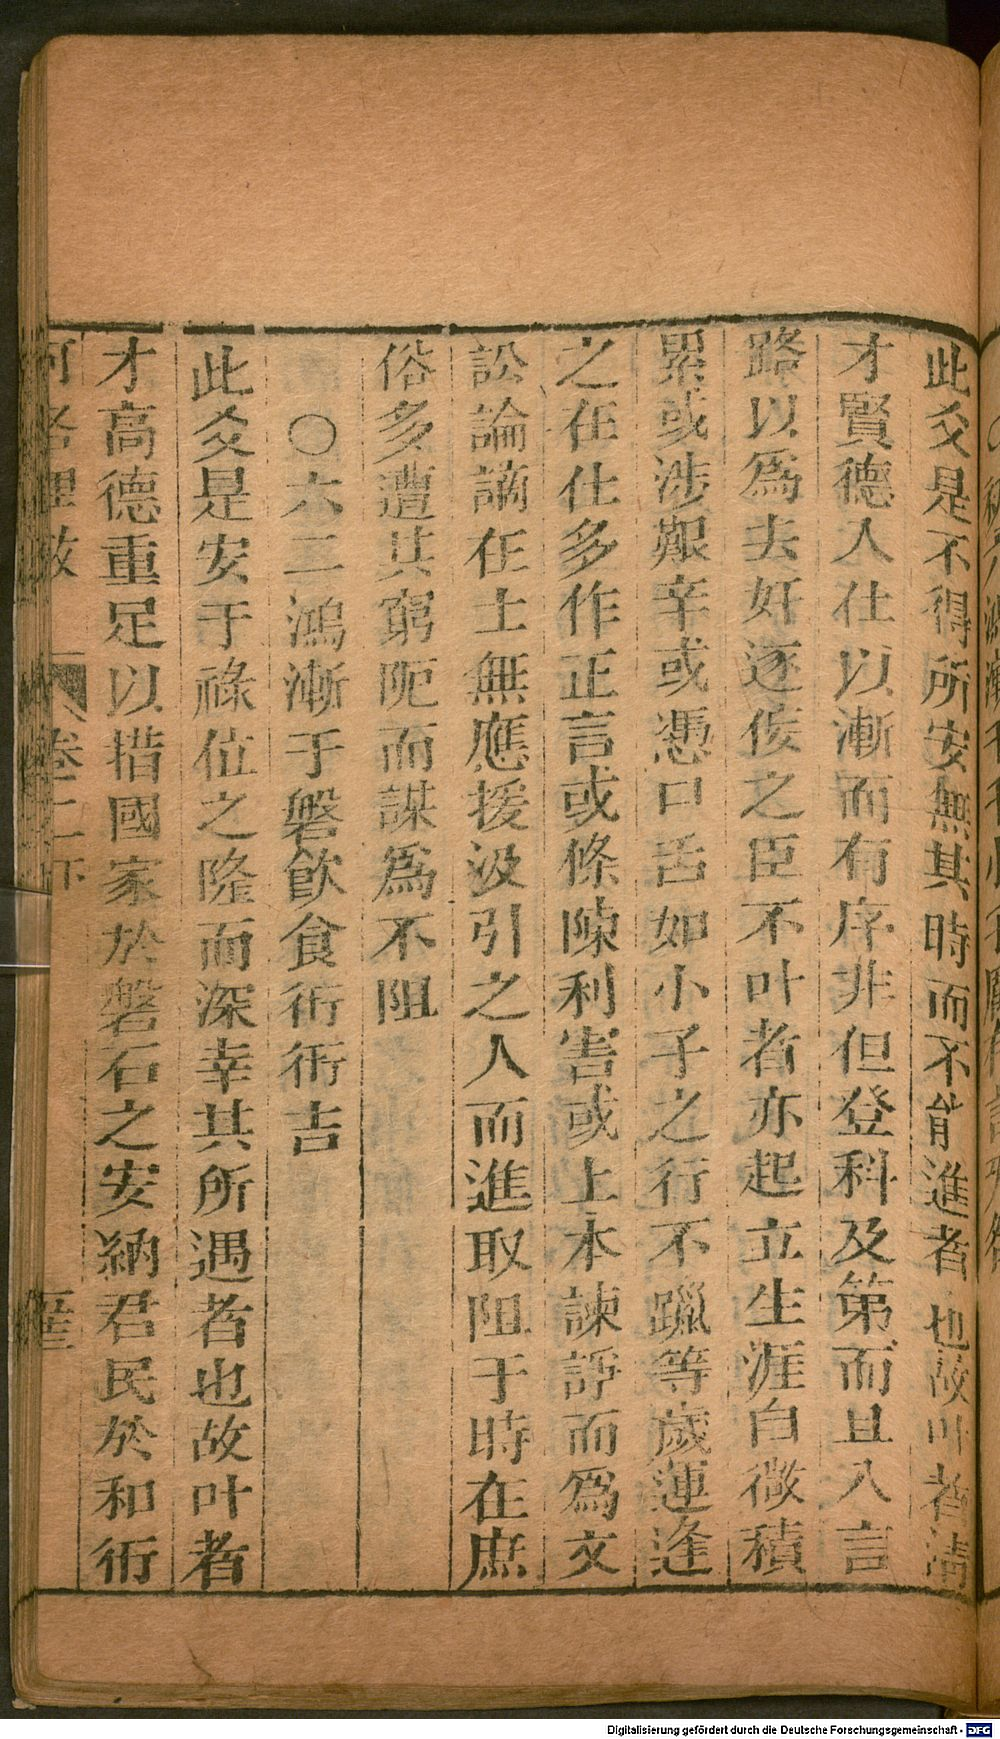 此爻是不得所安無其時而不能進者也故叶者清
才賢德入仕以漸而有序非但登科及第而且入言
路以為去奸逐佞之臣不叶者亦起立生涯自微積
累或涉艱辛或憑口舌如小子之行不躐等歲運逢
之在仕多作正言或條陳利害或上本諫諍而為文
訟論謫在士無應援汲引之人而進取阻于時在庶
俗多遭其窮阨而謀為不阻
○六二鴻漸于磐飲食衎衎吉
此爻是安于祿位之隆而深幸其所遇者也故叶者
才高德重足以措國家於磐石之安納君民於和衎
河洛理數 卷二
Digitalisierung gefördert durch die Deutsche Forschungsgemeinschaft - DFG